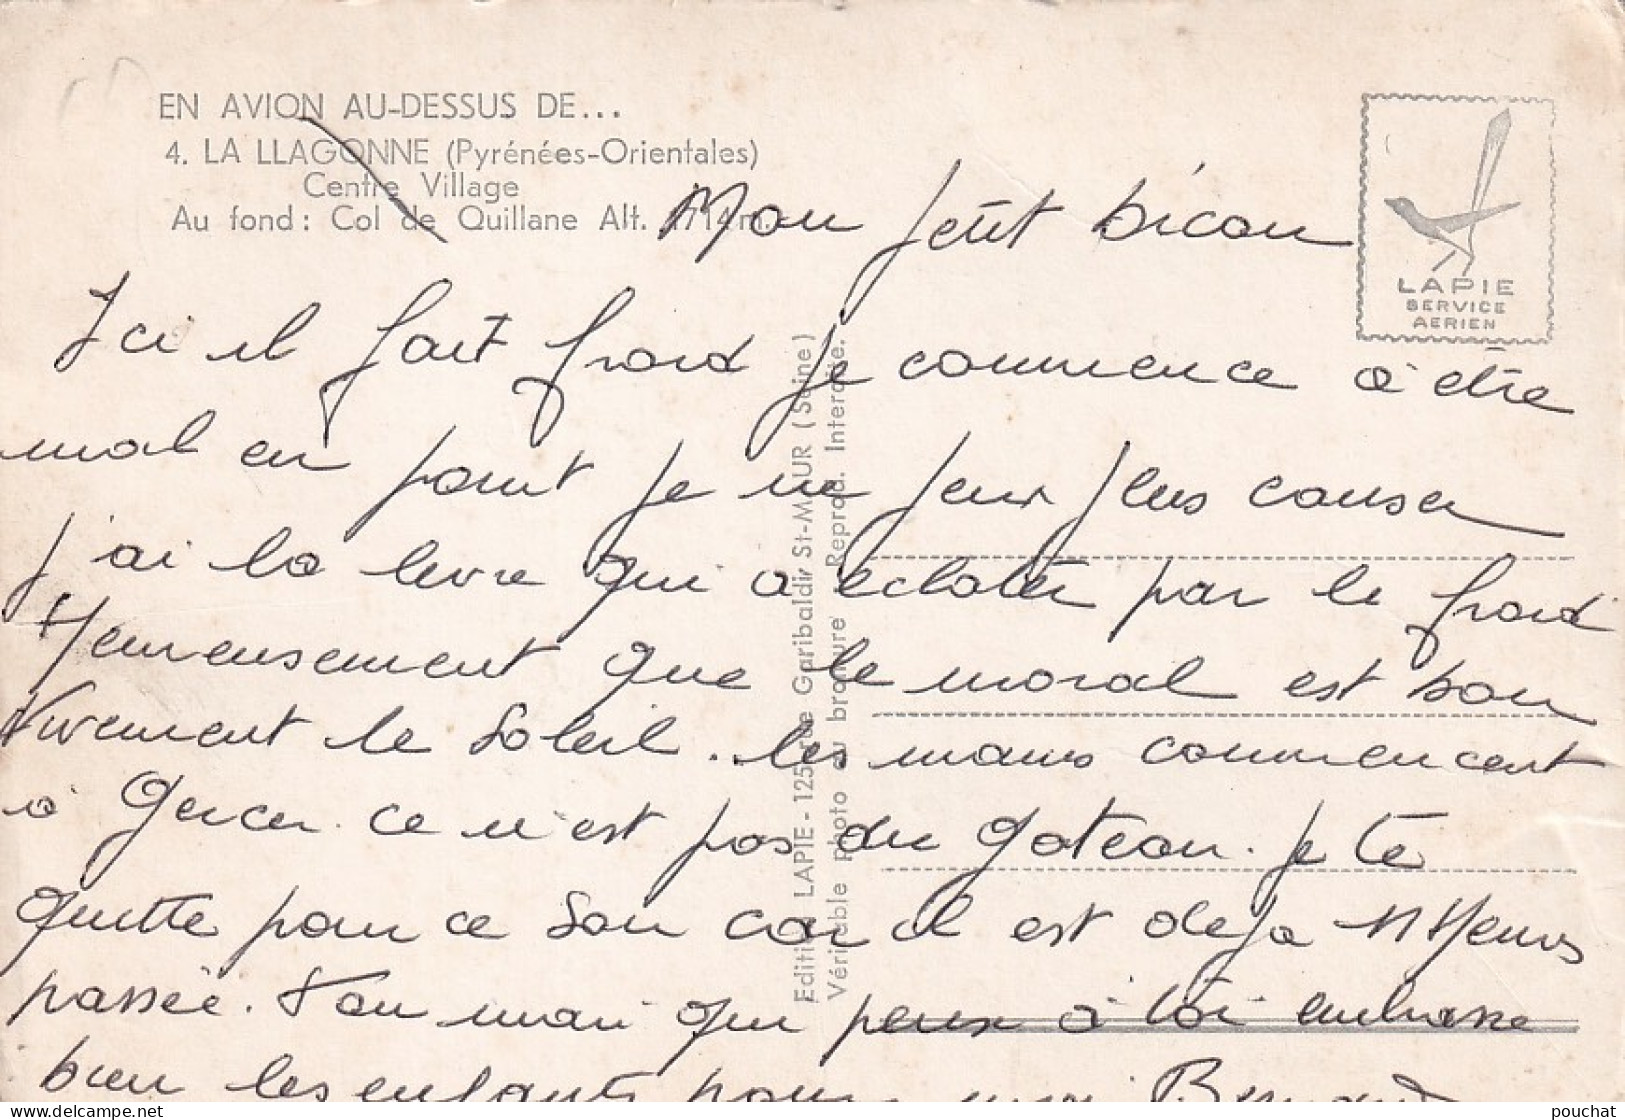 EN AVION AU-DESSUS DE...
4. LA LLAGONNE (Pyrénées-Orientales)
Centre Village
Au fond : Col de Quillane Alt. 1714 m.
LAPIE
SERVICE
AERIEN
Mon petit bicou
Ici il fait froid je commence a être
mal en point je ne peux plus causer
j'ai la levre qui a éclatée par le froid
Heureusement que le moral est bon
Vivement le soleil. les mains commencent
a Gercer. ce n'est pas du gateau. je te
quitte pour ce soir car il est deja 11 Heures
passée. Ton mari qui pense à toi embrasse
bien les enfants pour moi Bernard
Editions LAPIE - 125, rue Garibaldi, St-MAUR (Seine)
Véritable photo au bromure Reprod. Interdite.
pouchat